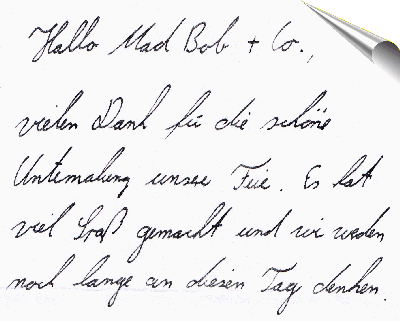 Hallo Mad Bob + Co.,
vielen Dank für die schöne
Untermalung unserer Feier. Es hat
viel Spaß gemacht und wir werden
noch lange an diesen Tag denken.